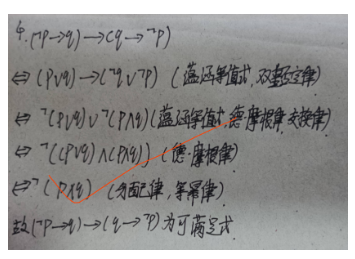 4.(¬p→q)→(q→¬p)
⇔(p∨q)→(¬q∨¬p) (蕴涵等值式,双重否定律)
⇔¬(p∨q)∨¬(p∧q)(蕴涵等值式,德·摩根律,交换律)
⇔¬((p∨q)∧(p∧q)) (德·摩根律)
⇔¬(p∧q) (分配律,等幂律)
故(¬p→q)→(q→¬p)为可满足式